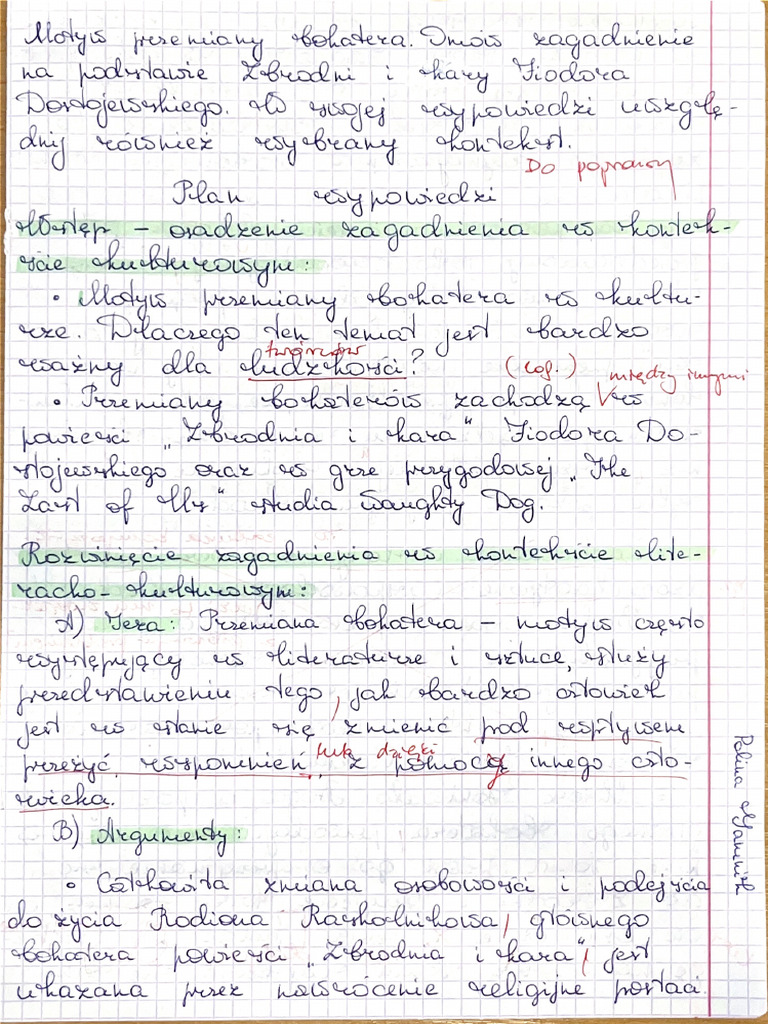 Motyw przemiany bohatera. Omów zagadnienie
na podstawie Zbrodni i kary Fiodora
Dostojewskiego. W swojej wypowiedzi uwzglę-
dnij również wybrany kontekst.
Do poprawy
Plan wypowiedzi
Wstęp – osadzenie zagadnienia w kontek-
ście kulturowym:
• Motyw przemiany bohatera w kultu-
rze. Dlaczego ten temat jest bardzo
twórców
ważny dla ludzkości?
(log.) między innymi
• Przemiany bohaterów zachodzą w
powieści „Zbrodnia i kara" Fiodora Do-
stojewskiego oraz w grze przygodowej „The
Last of Us" studia Naughty Dog.
Rozwinięcie zagadnienia w kontekście lite-
racko-kulturowym:
A) Teza: Przemiana bohatera – motyw często
występujący w literaturze i sztuce, służy
przedstawieniu tego, jak bardzo człowiek
jest w stanie się zmienić pod wpływem
lub dzięki
przeżyć, wspomnień, z pomocą innego czło-
wieka.
B) Argumenty:
• Całkowita zmiana osobowości i podejścia
do życia Rodiona Raskolnikowa, głównego
bohatera powieści „Zbrodnia i kara", jest
ukazana przez nawrócenie religijne postaci.
Polina